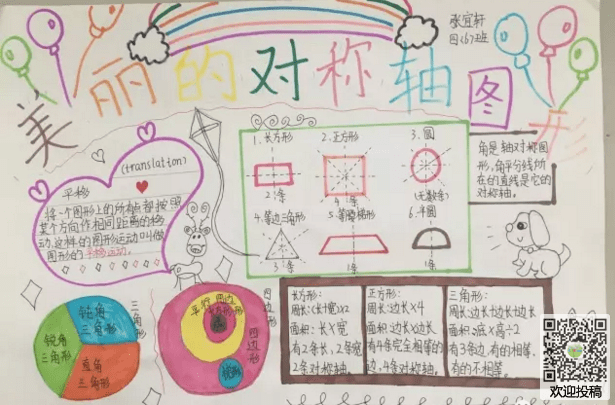 美丽的对称轴图形
张宜轩
四(6)班
(translation)
平移
将一个图形上的所有点都按照
某个方向作相同距离的移
动,这样的图形运动叫做
图形的平移运动。
1.长方形
2条
2.正方形
4条
3.圆
(无数条)
4.等边三角形
3条
5.等腰梯形
1条
6.半圆
1条
角是轴对称图
形,角平分线所
在的直线是它的
对称轴。
钝角
三角形
锐角
三角形
直角
三角形
三角形
平行四边形
四边形
四边形
长方形:
周长:(长+宽)×2
面积:长×宽
有2条长,2条宽
2条对称轴。
正方形:
周长:边长×4
面积:边长×边长
有4条完全相等的
边,4条对称轴。
三角形:
周长:边长+边长+边长
面积:底×高÷2
有3条边,有的相等,
有的不相等。
欢迎投稿